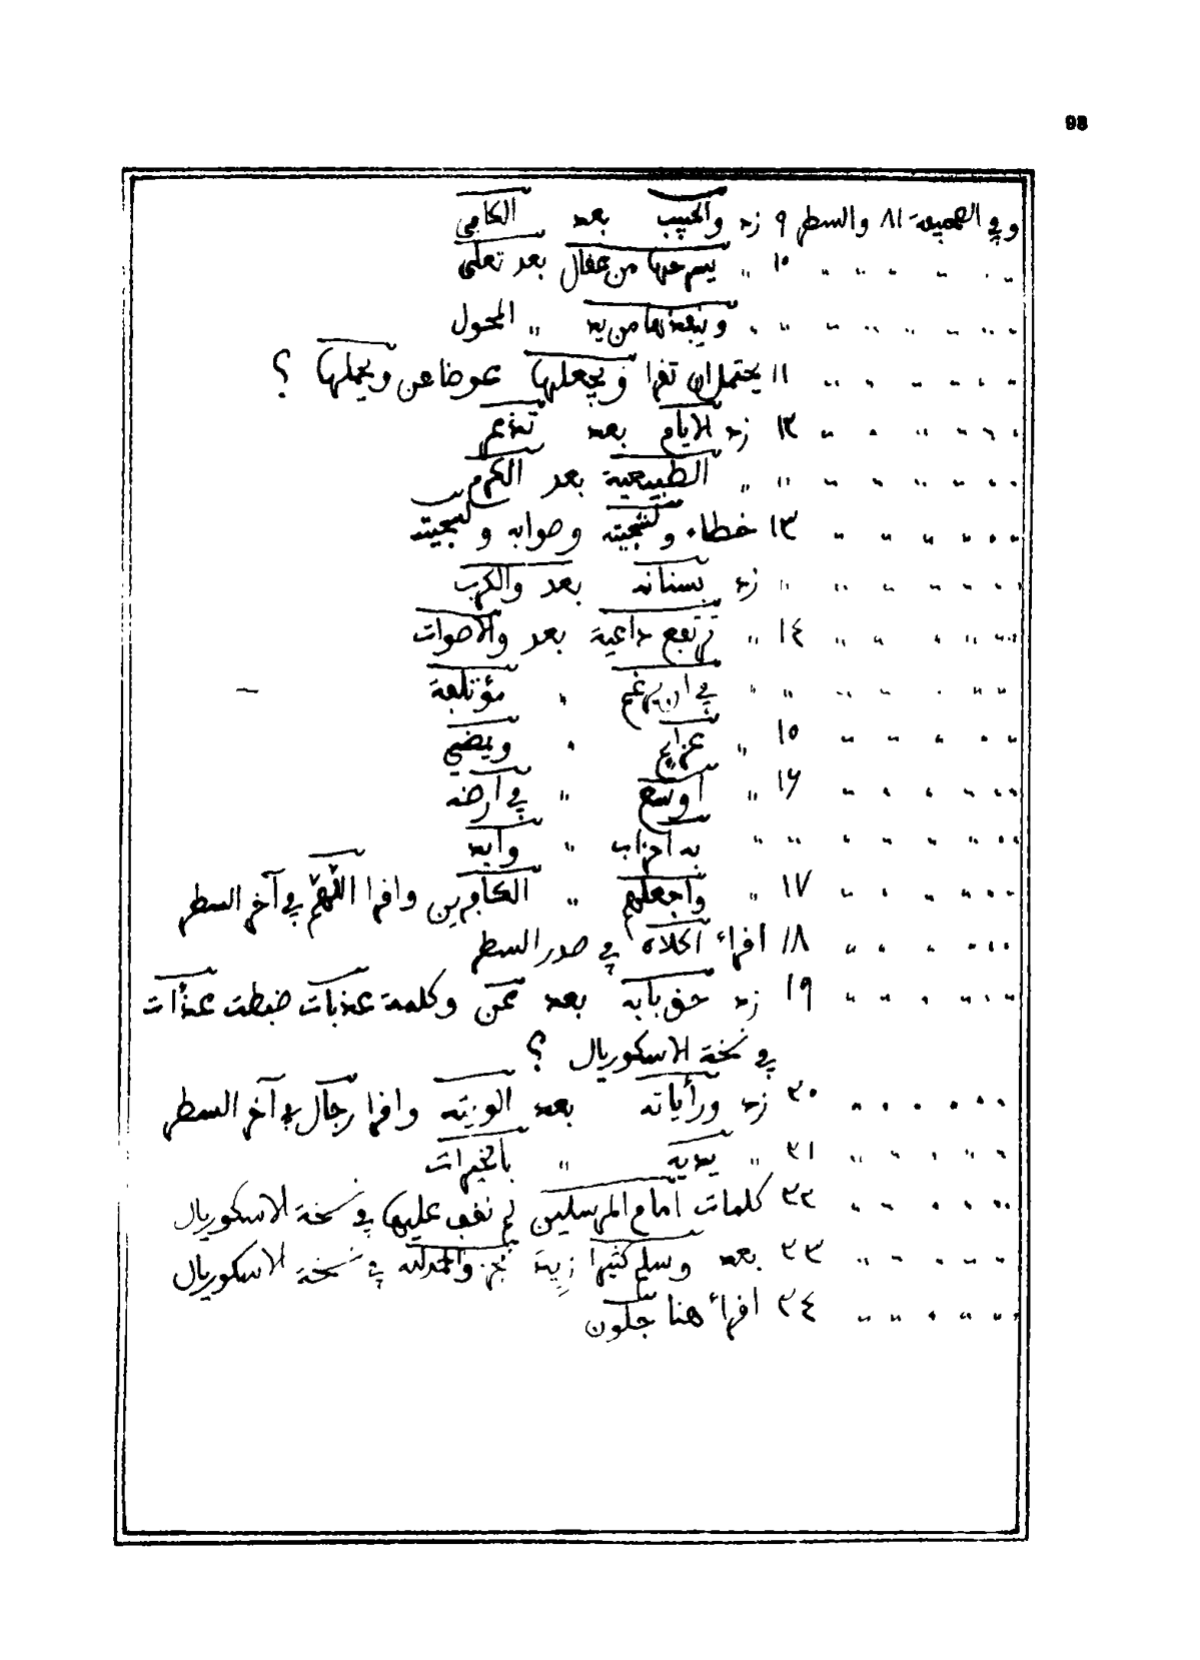 98
وفي الصحيفة ٨١ والسطر ٩ زد والحبيب بعد الكافي
" " " " " " ١٥ " يسرحها من عقال بعد تعلى
" " " " " " " " " المحول
" " " " " " ١١ يحتمل ان تقرا ويجعلها عوضا عن ويحملها ؟
" " " " " " ١٢ زد الايام بعد
" " " " " " " " الطبيعية بعد الكرم
" " " " " " ١٣ خطاء وصوابه
" " " " " " " زد بستانه بعد والكرب
" " " " " " ١٤ " ترتفع داعية بعد والاصوات
" " " " " " " " في ان " مؤتلفة
" " " " " ١٥ " " ويضي
" " " " " ١٦ " اوسع " في ارضه
" " " " " " " " به احزاب " وايد
" " " " " ١٧ " واجعلهم " الكافرين واقرا اللهم في آخر السطر
" " " " " ١٨ اقراء اكلاه في صدر السطر
" " " " " ١٩ زد حق بابه بعد عمن وكلمة عذبات ضبطت عذات
في نسخة الاسكوريال ؟
" " " " " ٢٠ زد ورأياته بعد الوزيته واقرا رجال في آخر السطر
" " " " " ٢١ " يديه " بالخيرات
" " " " " ٢٢ كلمات امام المرسلين لم نقف عليها في نسخة الاسكوريال
" " " " " ٢٣ بعد وسلم كثيرا والحمد لله في نسخة الاسكوريال
" " " " " ٢٤ اقرأ هنا جلون